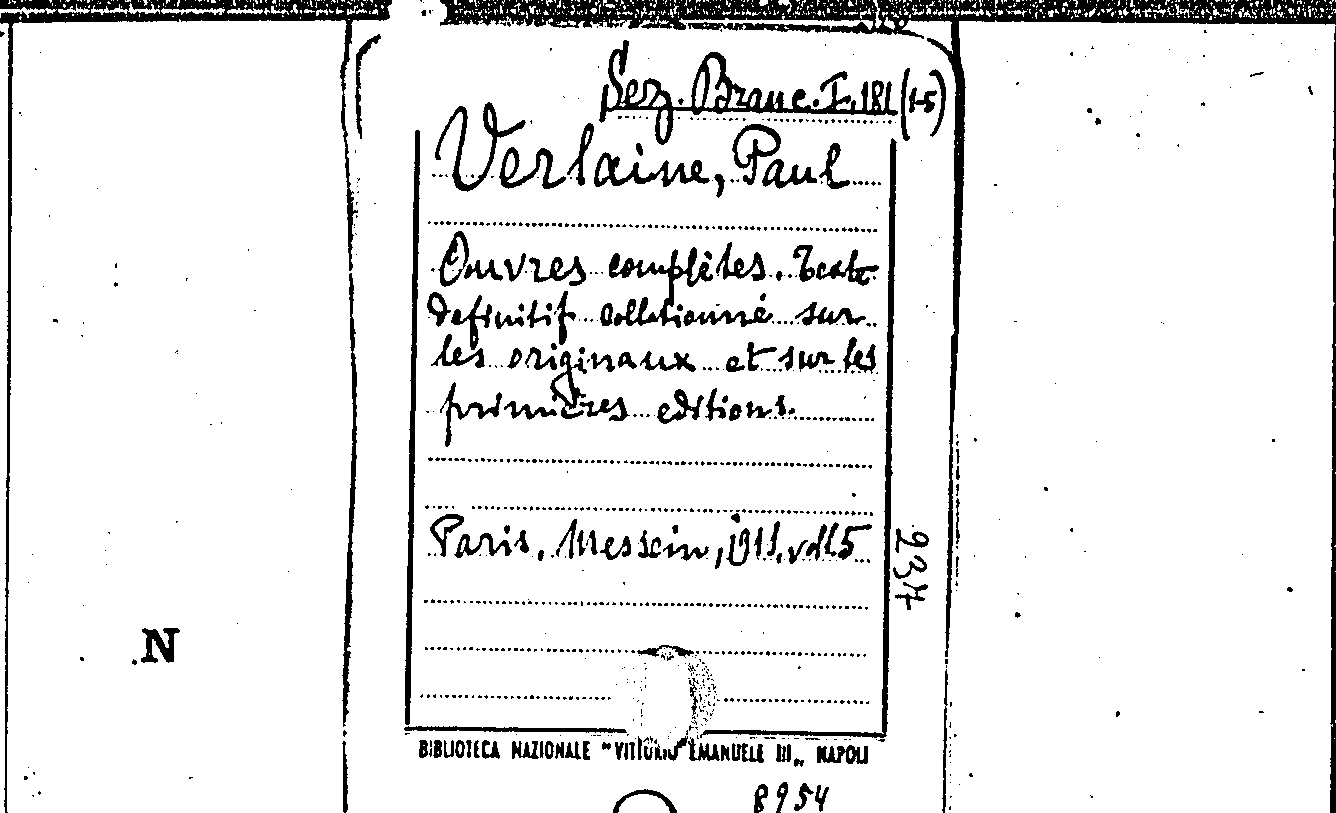 Sez. Branc. I. 181 (1-5)
Verlaine, Paul
Ouvres complètes. Texte
definitif collationné sur
les originaux et sur les
primières editions.
Paris, Messein, 1911, voll. 5
234
N
BIBLIOTECA NAZIONALE "VITTORIO EMANUELE III„ NAPOLI
8954